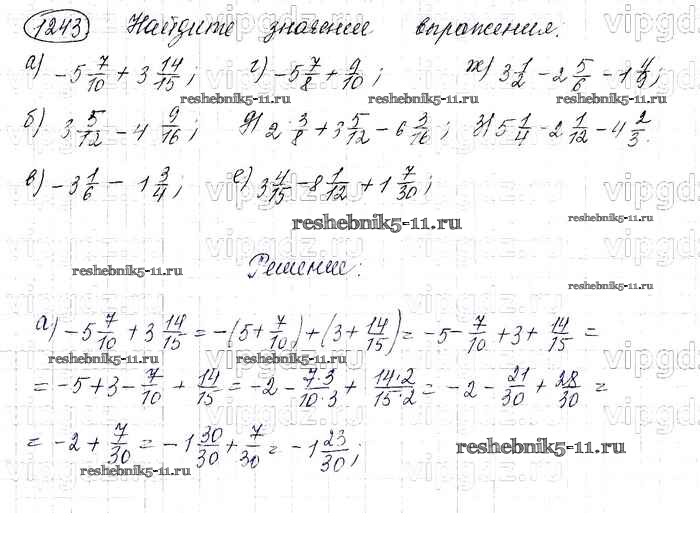 1243 Найдите значение выражения:
а) -5 7/10 + 3 14/15; г) -5 7/8 + 9/10; ж) 3 1/2 - 2 5/6 - 1 4/9;
reshebnik5-11.ru reshebnik5-11.ru reshebnik5-11.ru
б) 3 5/12 - 4 9/16; д) 2 3/8 + 3 5/12 - 6 3/16; з) 5 1/4 - 2 1/12 - 4 2/3.
в) -3 1/6 - 1 3/4; е) 3 4/15 - 8 1/12 + 1 7/30;
reshebnik5-11.ru reshebnik5-11.ru
Решение:
reshebnik5-11.ru
reshebnik5-11.ru
а) -5 7/10 + 3 14/15 = -(5 + 7/10) + (3 + 14/15) = -5 - 7/10 + 3 + 14/15 =
reshebnik5-11.ru reshebnik5-11.ru reshebnik5-11.ru
= -5 + 3 - 7/10 + 14/15 = -2 - 7·3/10·3 + 14·2/15·2 = -2 - 21/30 + 28/30 =
= -2 + 7/30 = -1 30/30 + 7/30 = -1 23/30;
reshebnik5-11.ru reshebnik5-11.ru